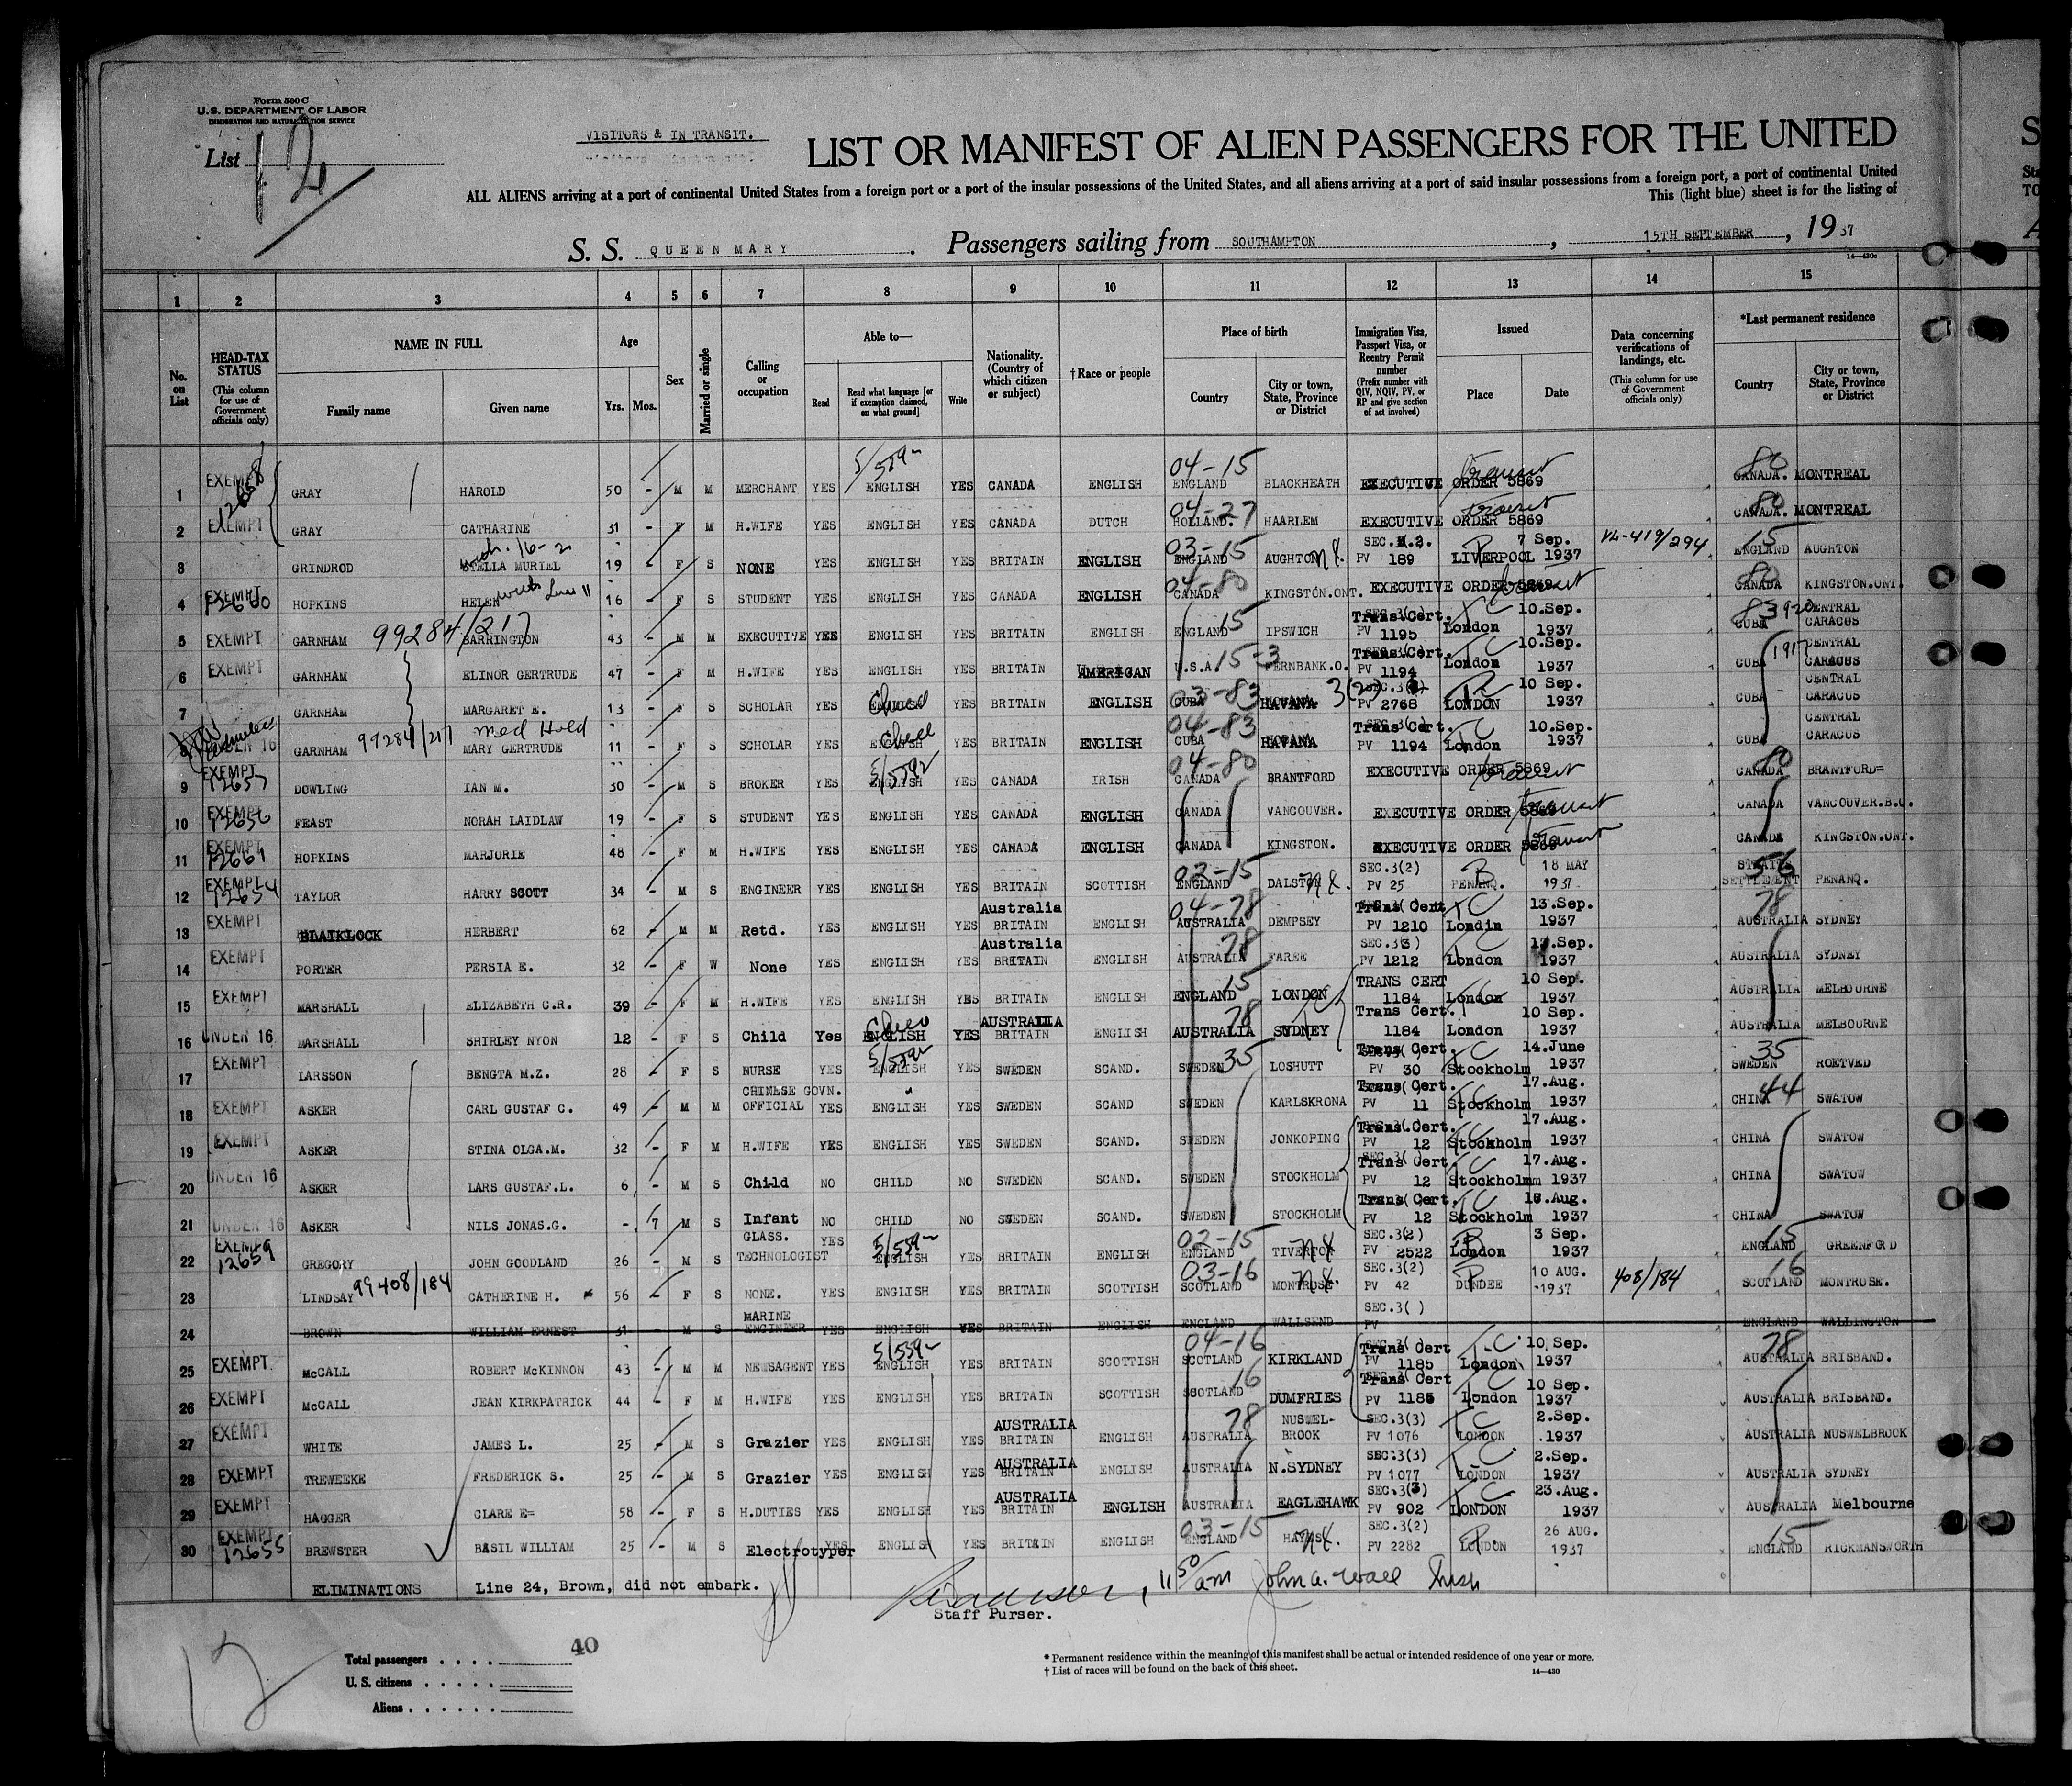 Form 500 C
U.S. DEPARTMENT OF LABOR
IMMIGRATION AND NATURALIZATION SERVICE
List 12
VISITORS & IN TRANSIT.
LIST OR MANIFEST OF ALIEN PASSENGERS FOR THE UNITED
ALL ALIENS arriving at a port of continental United States from a foreign port or a port of the insular possessions of the United States, and all aliens arriving at a port of said insular possessions from a foreign port, a port of continental United
This (light blue) sheet is for the listing of
S. S. QUEEN MARY. Passengers sailing from SOUTHAMPTON, 15TH SEPTEMBER, 1937
14—430c
1 2 3 4 5 6 7 8 9 10 11 12 13 14 15
No. on List
HEAD-TAX STATUS (This column for use of Government officials only)
NAME IN FULL Family name Given name
Age Yrs. Mos.
Sex
Married or single
Calling or occupation
Able to— Read Read what language [or if exemption claimed, on what ground] Write
Nationality. (Country of which citizen or subject)
†Race or people
Place of birth Country City or town, State, Province or District
Immigration Visa, Passport Visa, or Reentry Permit number (Prefix number with QIV, NQIV, PV, or RP and give section of act involved)
Issued Place Date
Data concerning verifications of landings, etc. (This column for use of Government officials only)
*Last permanent residence Country City or town, State, Province or District
1 EXEMPT 12658 GRAY HAROLD 50 - M M MERCHANT YES ENGLISH YES CANADA ENGLISH 04-15 ENGLAND BLACKHEATH EXECUTIVE ORDER 5869 transit 80 CANADA. MONTREAL
2 EXEMPT GRAY CATHARINE 31 - F M H.WIFE YES ENGLISH YES CANADA DUTCH 04-27 HOLLAND. HAARLEM EXECUTIVE ORDER 5869 transit 80 CANADA. MONTREAL
3 GRINDROD STELLA MURIEL 19 - F S NONE YES ENGLISH YES BRITAIN ENGLISH 03-15 ENGLAND AUGHTON SEC.3.2. PV 189 LIVERPOOL 7 Sep. 1937 VL-419/294 15 ENGLAND AUGHTON
4 EXEMPT 12660 HOPKINS HELEN with Line 11 16 - F S STUDENT YES ENGLISH YES CANADA ENGLISH 04-80 CANADA KINGSTON.ONT. EXECUTIVE ORDER 5869 transit 80 CANADA KINGSTON.ONT.
5 EXEMPT GARNHAM 99284/217 BARRINGTON 43 - M M EXECUTIVE YES ENGLISH YES BRITAIN ENGLISH 15 ENGLAND IPSWICH Trans Cert. PV 1195 London TC 10.Sep. 1937 83 1920 CUBA CENTRAL CARACUS
6 EXEMPT GARNHAM ELINOR GERTRUDE 47 - F M H.WIFE YES ENGLISH YES BRITAIN AMERICAN 15-3 U.S.A. FERNBANK.O. Trans Cert. PV 1194 London TC 10.Sep. 1937 CUBA 1917 CENTRAL CARACUS
7 GARNHAM MARGARET E. 13 - F S SCHOLAR YES ENGLISH YES BRITAIN ENGLISH 03-83 CUBA HAVANA 3(2) PV 2768 LONDON 10 Sep. 1937 CUBA CENTRAL CARACUS
UNDER 16 GARNHAM 99284/217 Med Held MARY GERTRUDE 11 - F S SCHOLAR YES ENGLISH YES BRITAIN ENGLISH 04-83 CUBA HAVANA Trans Cert. PV 1194 London TC 10.Sep. 1937 CUBA CENTRAL CARACUS
9 EXEMPT 12657 DOWLING IAN M. 30 - M S BROKER YES ENGLISH YES CANADA IRISH 04-80 CANADA BRANTFORD EXECUTIVE ORDER 5869 transit 80 CANADA BRANTFORD=
10 EXEMPT 12656 FEAST NORAH LAIDLAW 19 - F S STUDENT YES ENGLISH YES CANADA ENGLISH CANADA VANCOUVER. EXECUTIVE ORDER 5869 transit CANADA VANCOUVER.B.C.
11 EXEMPT 12661 HOPKINS MARJORIE 48 - F M H.WIFE YES ENGLISH YES CANADA ENGLISH CANADA KINGSTON. EXECUTIVE ORDER 5869 transit CANADA KINGSTON.ONT.
12 EXEMPT 12654 TAYLOR HARRY SCOTT 34 - M S ENGINEER YES ENGLISH YES BRITAIN SCOTTISH 02-15 ENGLAND DALSTON SEC.3(2) PV 25 PENANQ. 18 MAY 1937 56 STRAITS SETTLEMENT PENANQ.
13 EXEMPT BLAIKLOCK HERBERT 62 - M M Retd. YES ENGLISH YES Australia BRITAIN ENGLISH 04-78 AUSTRALIA DEMPSEY Trans Cert PV 1210 Londin TC 13.Sep. 1937 78 AUSTRALIA SYDNEY
14 EXEMPT PORTER PERSIA E. 32 - F W None YES ENGLISH YES Australia BRITAIN ENGLISH 78 AUSTRALIA FAREE SEC.3(3) PV 1212 London TC Sep. 1937 AUSTRALIA SYDNEY
15 EXEMPT MARSHALL ELIZABETH C.R. 39 - F M H.WIFE YES ENGLISH YES BRITAIN ENGLISH 15 ENGLAND LONDON TRANS CERT 1184 London 10 Sep. 1937 AUSTRALIA MELBOURNE
16 UNDER 16 MARSHALL SHIRLEY NYON 12 - F S Child Yes ENGLISH YES AUSTRALIA BRITAIN ENGLISH 78 AUSTRALIA SYDNEY Trans Cert. 1184 London 10 Sep. 1937 AUSTRALIA MELBOURNE
17 EXEMPT LARSSON BENGTA M.Z. 28 - F S NURSE YES ENGLISH YES SWEDEN SCAND. 35 SWEDEN LOSHUTT Trans Cert. PV 30 Stockholm TC 14.June 1937 35 SWEDEN ROETVED
18 EXEMPT ASKER CARL GUSTAF C. 49 - M M CHINESE GOVN. OFFICIAL YES ENGLISH YES SWEDEN SCAND SWEDEN KARLSKRONA Trans Cert. PV 11 Stockholm TC 17.Aug. 1937 44 CHINA SWATOW
19 EXEMPT ASKER STINA OLGA.M. 32 - F M H.WIFE YES ENGLISH YES SWEDEN SCAND. SWEDEN JONKOPING Trans.Cert. PV 12 Stockholm TC 17.Aug. 1937 CHINA SWATOW
20 UNDER 16 ASKER LARS GUSTAF.L. 6 - M S Child NO CHILD NO SWEDEN SCAND. SWEDEN STOCKHOLM Trans Cert. PV 12 Stockholmm TC 17.Aug. 1937 CHINA SWATOW
21 UNDER 16 ASKER NILS JONAS.G. - 7 M S Infant NO CHILD NO SWEDEN SCAND. SWEDEN STOCKHOLM Trans Cert. PV 12 Stockholm TC Aug. 1937 CHINA SWATOW
22 EXEMPT 12659 GREGORY JOHN GOODLAND 26 - M S GLASS. TECHNOLOGIST YES ENGLISH YES BRITAIN ENGLISH 02-15 ENGLAND TIVERTON SEC.3(2) PV 2522 London 3 Sep. 1937 15 ENGLAND GREENFORD
23 LINDSAY 99408/184 CATHERINE H. 56 - F S NONE. YES ENGLISH YES BRITAIN SCOTTISH 03-16 SCOTLAND MONTROSE. SEC.3(2) PV 42 DUNDEE 10 AUG. 1937 408/184 16 SCOTLAND MONTROSE.
24 BROWN WILLIAM ERNEST 31 - M S MARINE ENGINEER YES ENGLISH YES BRITAIN ENGLISH ENGLAND WALLSEND SEC.3( ) PV ENGLAND WALLINGTON
25 EXEMPT. McCALL ROBERT McKINNON 43 - M M NEWSAGENT YES ENGLISH YES BRITAIN SCOTTISH 04-16 SCOTLAND KIRKLAND Trans Cert PV 1185 London TC 10 Sep. 1937 78 AUSTRALIA BRISBAND.
26 EXEMPT McCALL JEAN KIRKPATRICK 44 - F M H.WIFE YES ENGLISH YES BRITAIN SCOTTISH 16 SCOTLAND DUMFRIES Trans Cert PV 1185 London TC 10 Sep. 1937 AUSTRALIA BRISBAND.
27 EXEMPT WHITE JAMES L. 25 - M S Grazier YES ENGLISH YES AUSTRALIA BRITAIN ENGLISH 78 AUSTRALIA NUSWEL-BROOK SEC.3(3) PV 1076 LONDON TC 2.Sep. 1937 AUSTRALIA NUSWELBROOK
28 EXEMPT TREWEEKE FREDERICK S. 25 - M S Grazier YES ENGLISH YES AUSTRALIA BRITAIN ENGLISH AUSTRALIA N.SYDNEY SEC.3(3) PV 1077 LONDON TC 2.Sep. 1937 AUSTRALIA SYDNEY
29 EXEMPT HAGGER CLARE E= 58 - F S H.DUTIES YES ENGLISH YES AUSTRALIA BRITAIN ENGLISH AUSTRALIA EAGLEHAWK SEC.3(3) PV 902 LONDON TC 23.Aug. 1937 AUSTRALIA Melbourne
30 EXEMPT 12655 BREWSTER BASIL WILLIAM 25 - M S Electrotyper YES ENGLISH YES BRITAIN ENGLISH 03-15 ENGLAND SEC.3(2) PV 2282 LONDON 26 AUG. 1937 15 ENGLAND RICKMANSWORTH
ELIMINATIONS Line 24, Brown, did not embark.
Staff Purser.
12
40
Total passengers
U. S. citizens
Aliens
* Permanent residence within the meaning of this manifest shall be actual or intended residence of one year or more.
† List of races will be found on the back of this sheet.
14—430